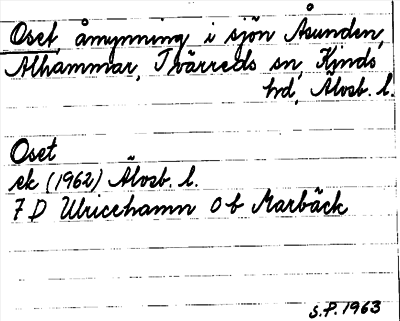 Oset, åmynning i sjön Åsunden,
Alhammar, Tvärreds sn, Kinds
hd, Älvsb. l.
Oset
ek (1962) Älvsb. l.
7 D Ulricehamn 0 b Marbäck
S.P. 1963